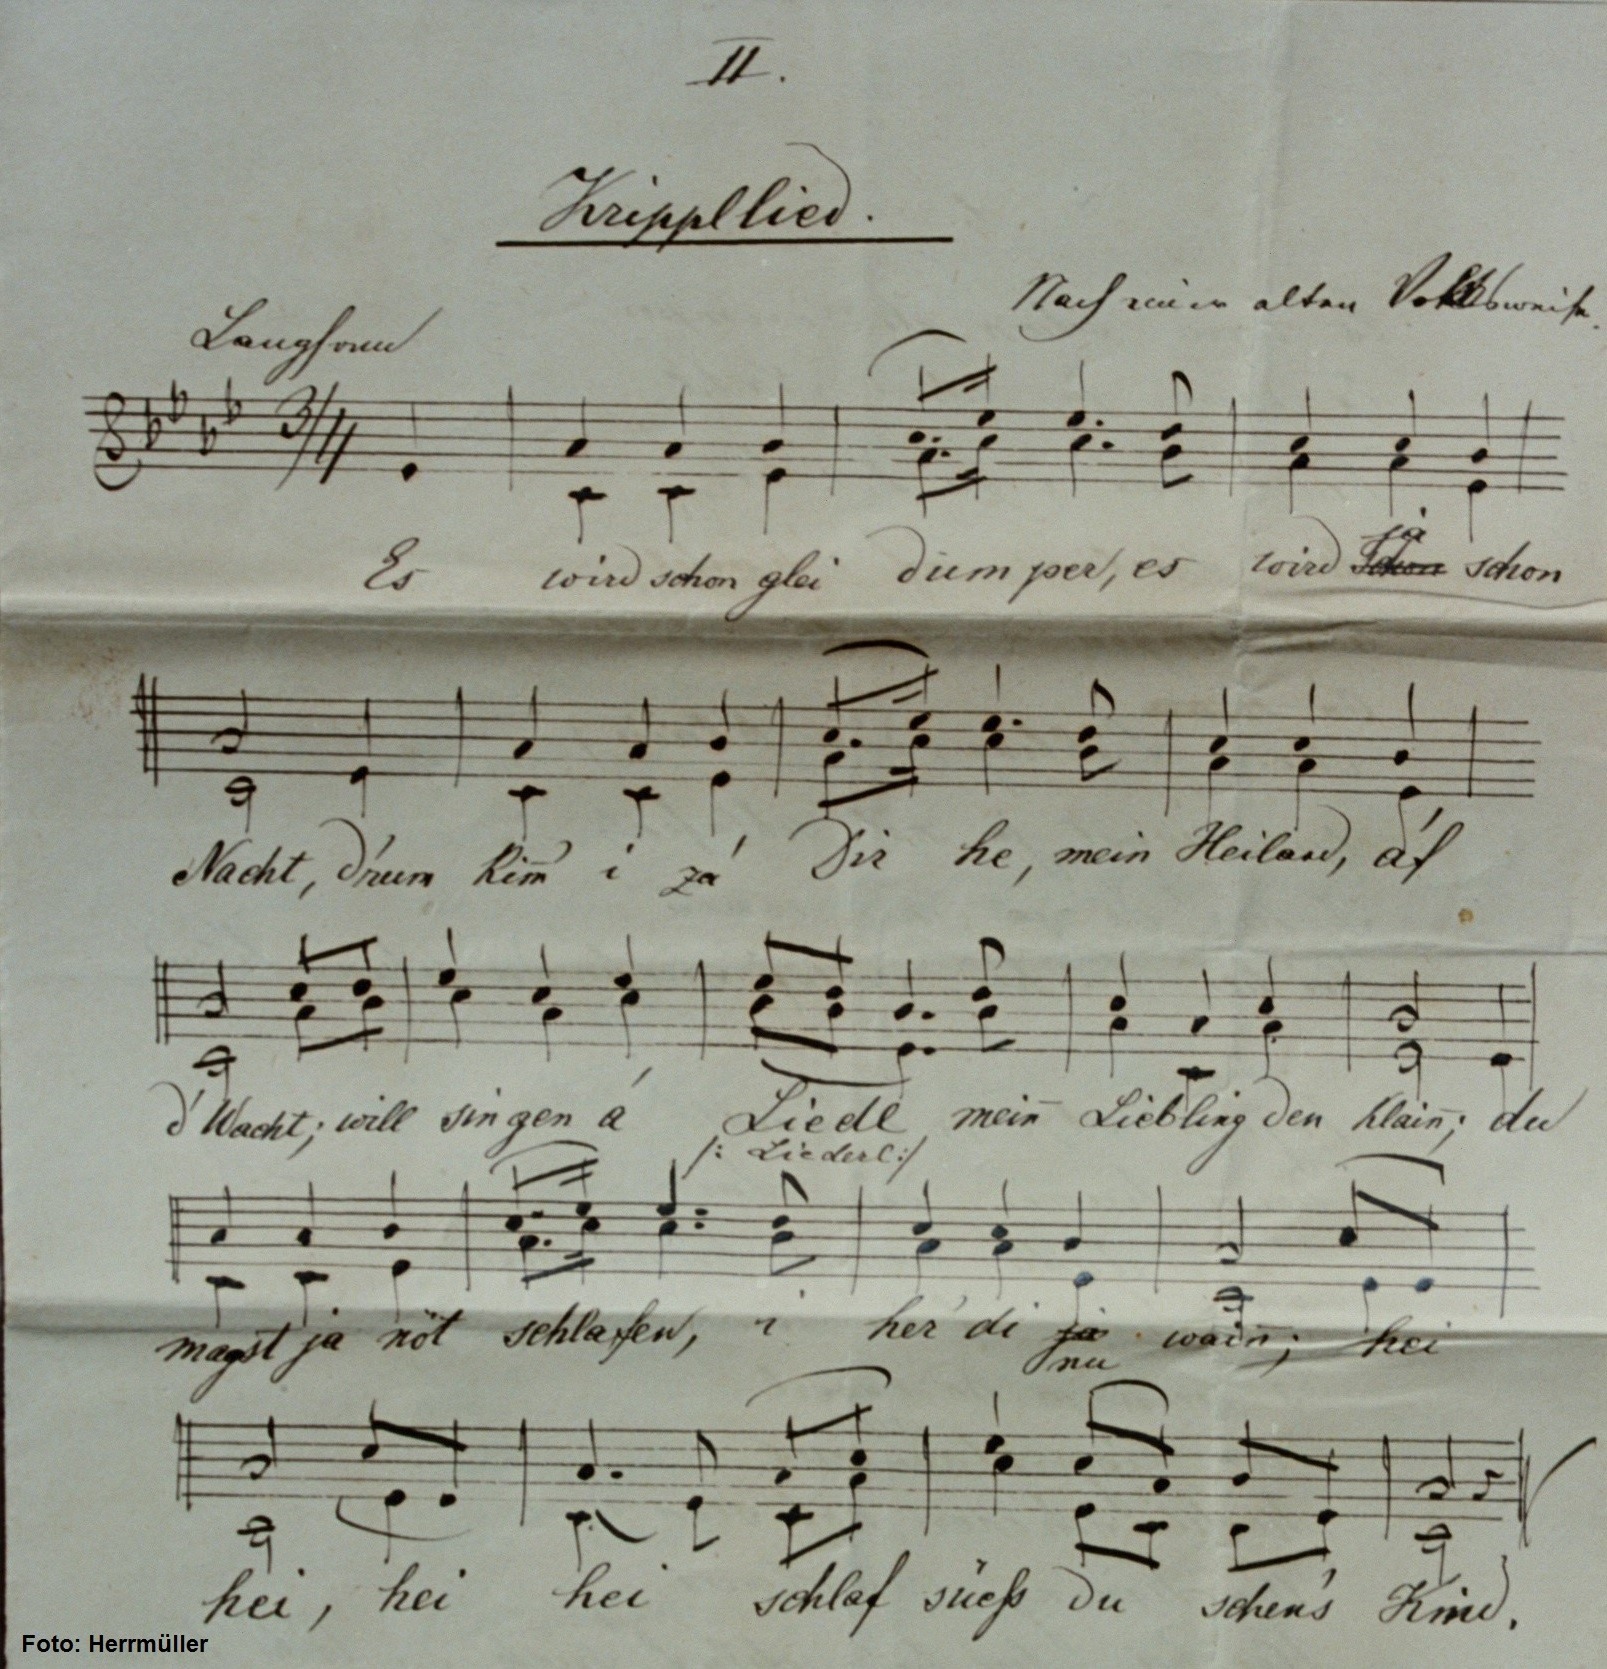 II.
Krippllied.
Nach einer alten Volksweise.
Langsam
3/4
Es wird schon glei dumper, es wird ja schon schon
Nacht, d'rum kim̄ i zá Dir he, mein Heiland, áf
d'Wacht; will singen á Liedl mein̄ Liebling den klain̄; du
/: Liederl :/
magst ja nöt schlafen, i her' di ja wain̄; hei
nu
hei, hei hei schlaf süeß du schens Kind.
Foto: Herrmüller